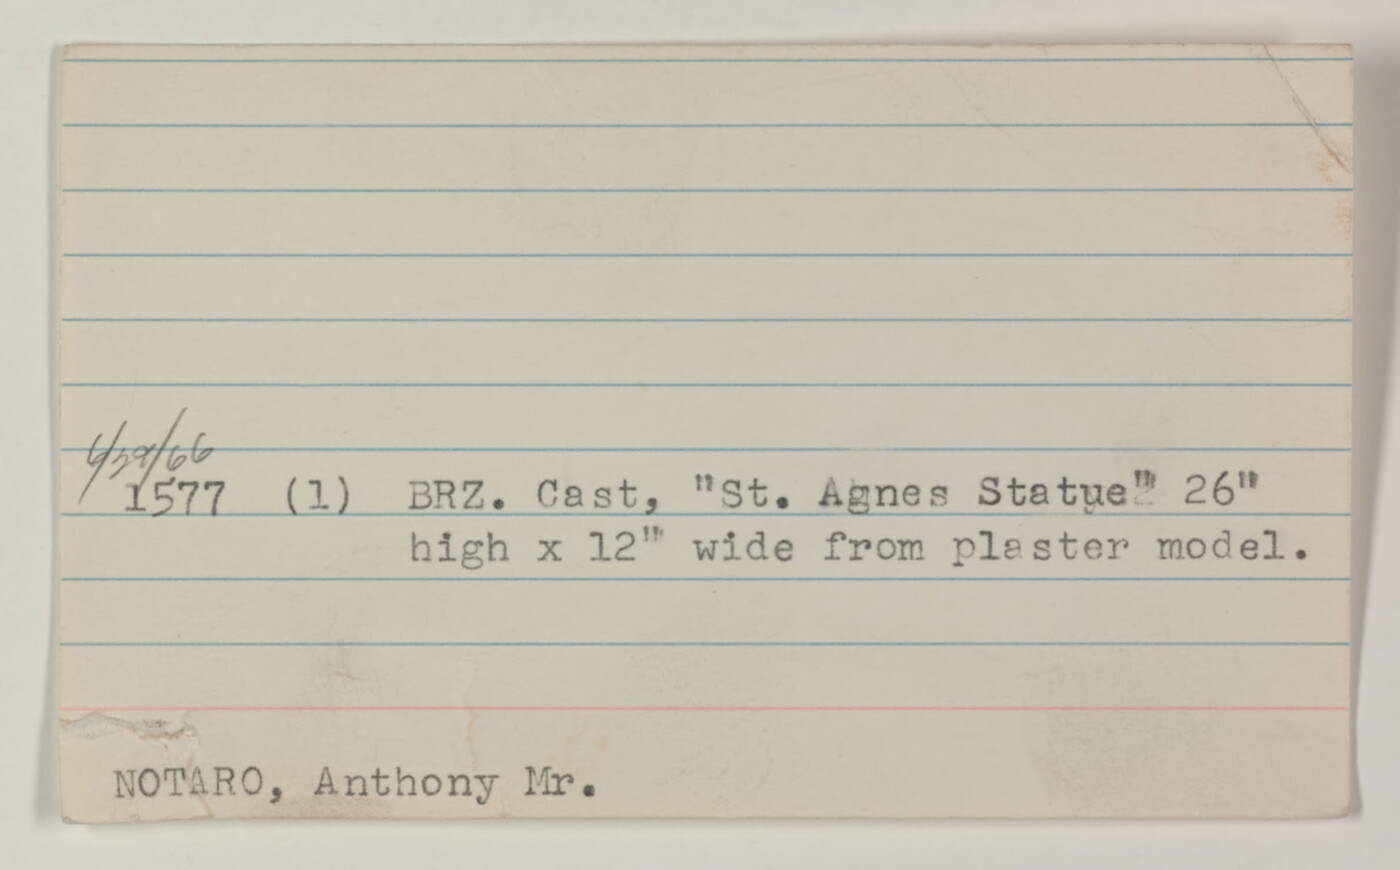 6/29/66
1577 (1) BRZ. Cast, "St. Agnes Statue" 26"
high x 12" wide from plaster model.
NOTARO, Anthony Mr.